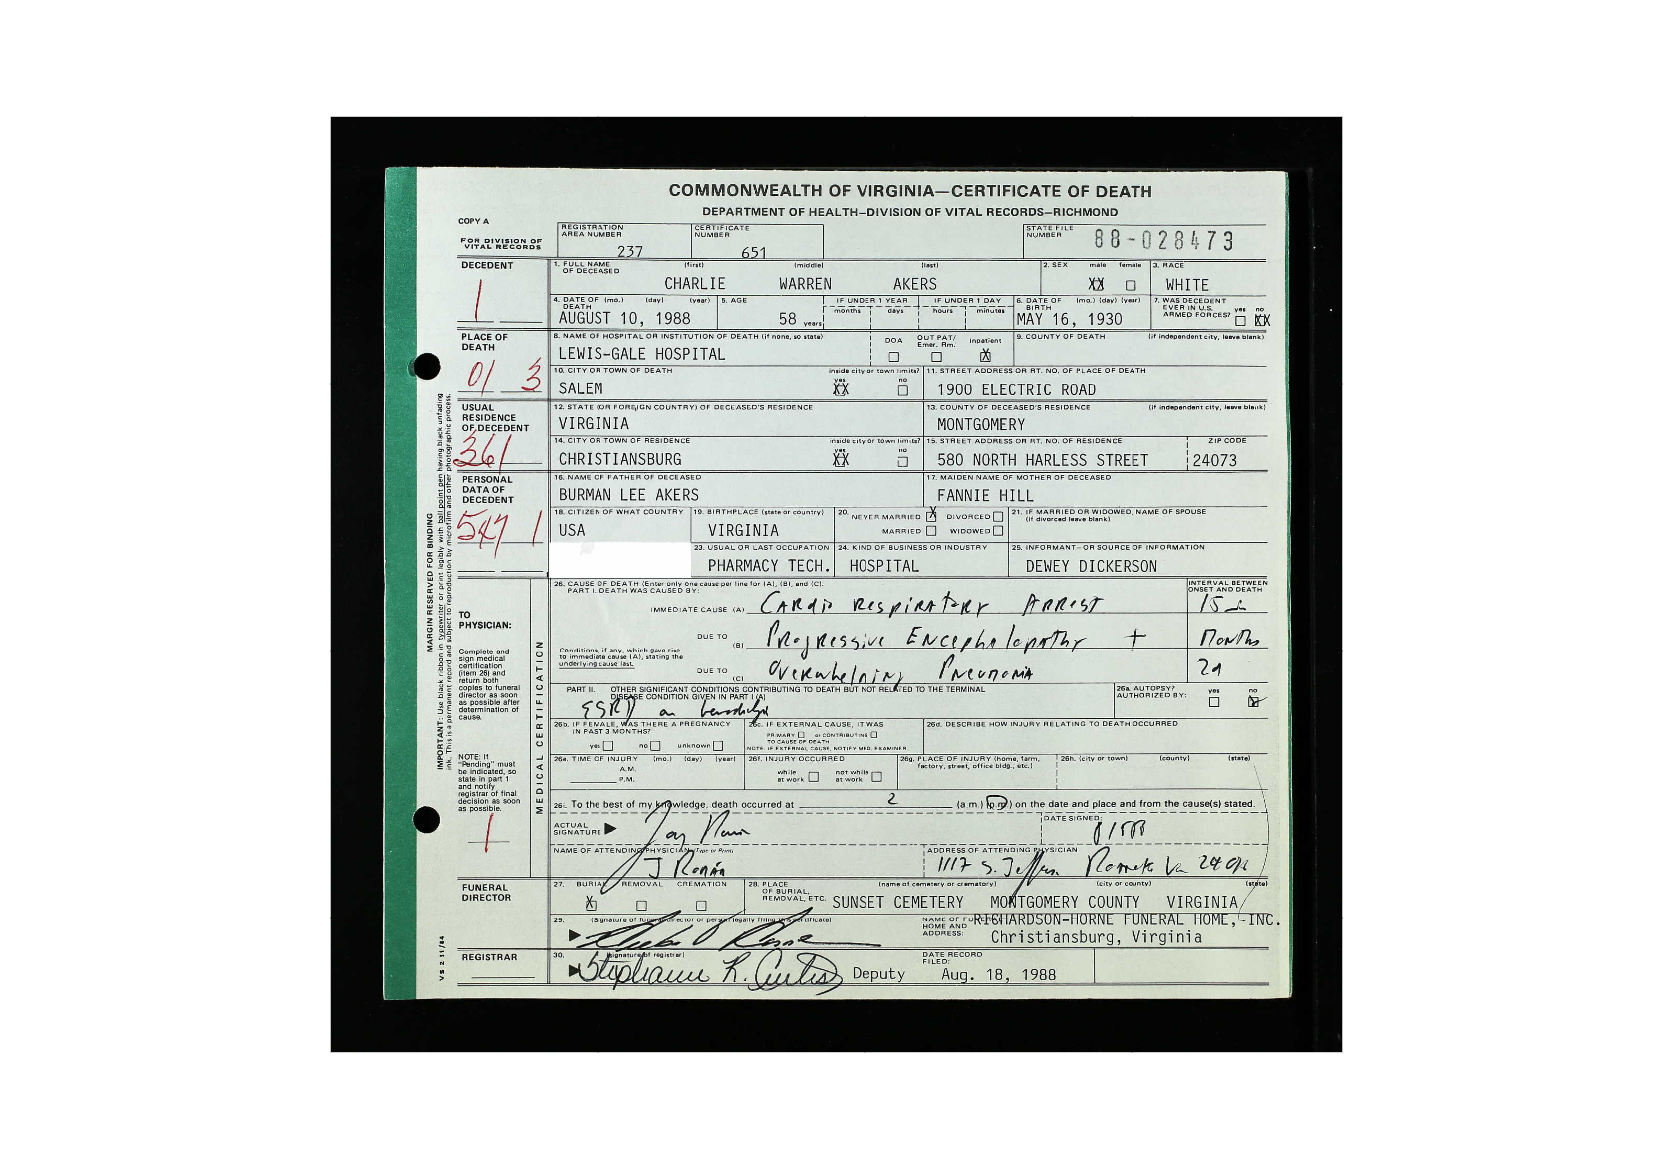 COMMONWEALTH OF VIRGINIA—CERTIFICATE OF DEATH
DEPARTMENT OF HEALTH—DIVISION OF VITAL RECORDS—RICHMOND
COPY A
FOR DIVISION OF VITAL RECORDS
REGISTRATION AREA NUMBER 237
CERTIFICATE NUMBER 651
STATE FILE NUMBER 88-028473
DECEDENT
1
1. FULL NAME OF DECEASED (first) (middle) (last)
CHARLIE WARREN AKERS
2. SEX male female
XX
3. RACE
WHITE
4. DATE OF DEATH (mo.) (day) (year)
AUGUST 10, 1988
5. AGE
58 years
IF UNDER 1 YEAR months days
IF UNDER 1 DAY hours minutes
6. DATE OF BIRTH (mo.) (day) (year)
MAY 16, 1930
7. WAS DECEDENT EVER IN U.S. ARMED FORCES? yes no
XX
PLACE OF DEATH
01 3
8. NAME OF HOSPITAL OR INSTITUTION OF DEATH (if none, so state)
LEWIS-GALE HOSPITAL
DOA OUT PAT/ Emer. Rm. Inpatient
X
9. COUNTY OF DEATH (if independent city, leave blank)
10. CITY OR TOWN OF DEATH inside city or town limits? yes no
SALEM XX
11. STREET ADDRESS OR RT. NO. OF PLACE OF DEATH
1900 ELECTRIC ROAD
USUAL RESIDENCE OF DECEDENT
361
12. STATE (OR FOREIGN COUNTRY) OF DECEASED'S RESIDENCE
VIRGINIA
13. COUNTY OF DECEASED'S RESIDENCE (if independent city, leave blank)
MONTGOMERY
14. CITY OR TOWN OF RESIDENCE inside city or town limits? yes no
CHRISTIANSBURG XX
15. STREET ADDRESS OR RT. NO. OF RESIDENCE
580 NORTH HARLESS STREET
ZIP CODE
24073
PERSONAL DATA OF DECEDENT
547 1
16. NAME OF FATHER OF DECEASED
BURMAN LEE AKERS
17. MAIDEN NAME OF MOTHER OF DECEASED
FANNIE HILL
18. CITIZEN OF WHAT COUNTRY
USA
19. BIRTHPLACE (state or country)
VIRGINIA
20. NEVER MARRIED X DIVORCED
MARRIED WIDOWED
21. IF MARRIED OR WIDOWED, NAME OF SPOUSE (if divorced leave blank)
23. USUAL OR LAST OCCUPATION
PHARMACY TECH.
24. KIND OF BUSINESS OR INDUSTRY
HOSPITAL
25. INFORMANT—OR SOURCE OF INFORMATION
DEWEY DICKERSON
MARGIN RESERVED FOR BINDING
IMPORTANT: Use black ribbon in typewriter or print legibly with ball point pen having black unfading
ink. This is a permanent record and subject to reproduction by microfilm and other photographic process.
TO PHYSICIAN:
Complete and
sign medical
certification
(item 26) and
return both
copies to funeral
director as soon
as possible after
determination of
cause.
NOTE: If
"Pending" must
be indicated, so
state in part 1
and notify
registrar of final
decision as soon
as possible.
1
MEDICAL CERTIFICATION
26. CAUSE OF DEATH (Enter only one cause per line for (A), (B), and (C).
PART I. DEATH WAS CAUSED BY:
INTERVAL BETWEEN ONSET AND DEATH
IMMEDIATE CAUSE (A) Cardio respiratory Arrest 15
DUE TO (B) Progressive Encephalopathy + Months
Conditions, if any, which gave rise
to immediate cause (A), stating the
underlying cause last.
DUE TO (C) Overwhelming Pneumonia
PART II. OTHER SIGNIFICANT CONDITIONS CONTRIBUTING TO DEATH BUT NOT RELATED TO THE TERMINAL
DISEASE CONDITION GIVEN IN PART I (A)
ESRD on
26a. AUTOPSY? AUTHORIZED BY: yes no
26b. IF FEMALE, WAS THERE A PREGNANCY IN PAST 3 MONTHS?
yes no unknown
26c. IF EXTERNAL CAUSE, IT WAS
PRIMARY or CONTRIBUTING
TO CAUSE OF DEATH
NOTE: IF EXTERNAL CAUSE, NOTIFY MED. EXAMINER
26d. DESCRIBE HOW INJURY RELATING TO DEATH OCCURRED
26e. TIME OF INJURY (mo.) (day) (year)
A.M.
P.M.
26f. INJURY OCCURRED
while at work not while at work
26g. PLACE OF INJURY (home, farm, factory, street, office bldg., etc.)
26h. (city or town) (county) (state)
26i. To the best of my knowledge, death occurred at 2 (a.m.) (p.m.) on the date and place and from the cause(s) stated.
ACTUAL SIGNATURE
DATE SIGNED:
NAME OF ATTENDING PHYSICIAN (Type or Print)
ADDRESS OF ATTENDING PHYSICIAN
1117 S. Va
FUNERAL DIRECTOR
27. BURIAL REMOVAL CREMATION
X
28. PLACE OF BURIAL, REMOVAL, ETC. (name of cemetery or crematory) (city or county) (state)
SUNSET CEMETERY MONTGOMERY COUNTY VIRGINIA
29. (Signature of funeral director or person legally filing this certificate)
NAME OF FUNERAL HOME AND ADDRESS:
RICHARDSON-HORNE FUNERAL HOME, INC.
Christiansburg, Virginia
REGISTRAR
30. (signature of registrar)
Stephanie R. Curtis Deputy
DATE RECORD FILED:
Aug. 18, 1988
VS 2 11/84